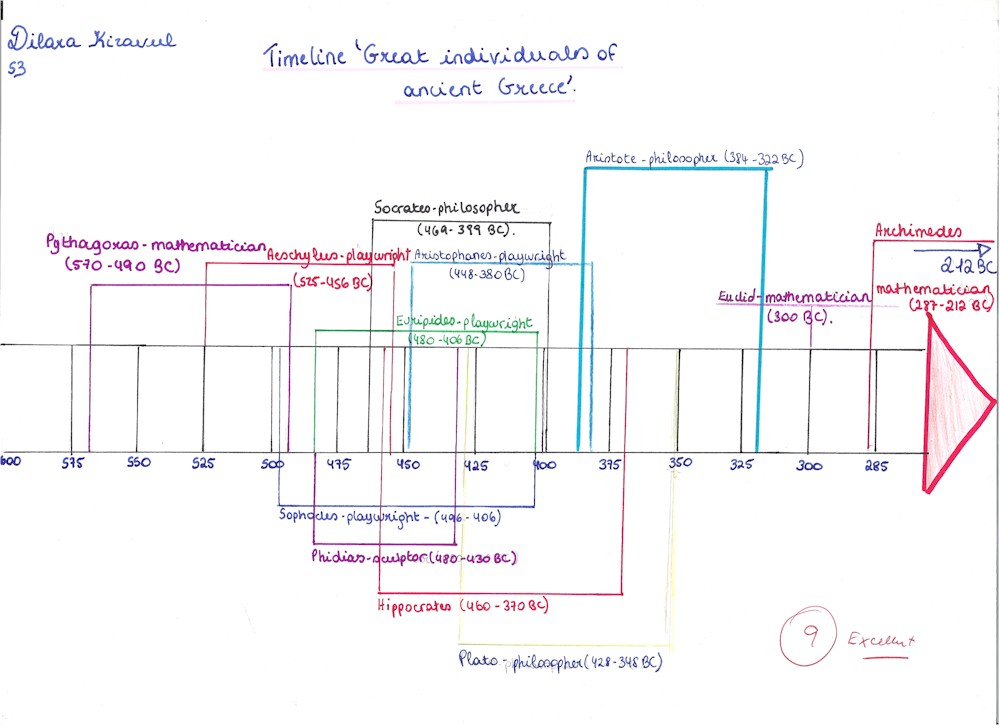 Dilara Kiravul
S3
Timeline 'Great individuals of
ancient Greece'.
Aristote-philosopher (384-322 BC)
Socrates-philosopher
(469-399 BC).
Pythagoras-mathematician
(570-490 BC)
Aeschylus-playwright
(525-456 BC)
Aristophanes-playwright
(448-380 BC)
Archimedes
212 BC
mathematician
(287-212 BC)
Euclid-mathematician
(300 BC).
Euripides-playwright
(480-406 BC)
600 575 550 525 500 475 450 425 400 375 350 325 300 285
Sophocles-playwright-(496-406)
Phidias-sculptor (480-430 BC)
Hippocrates (460-370 BC)
Plato-philosopher (428-348 BC)
9 Excellent